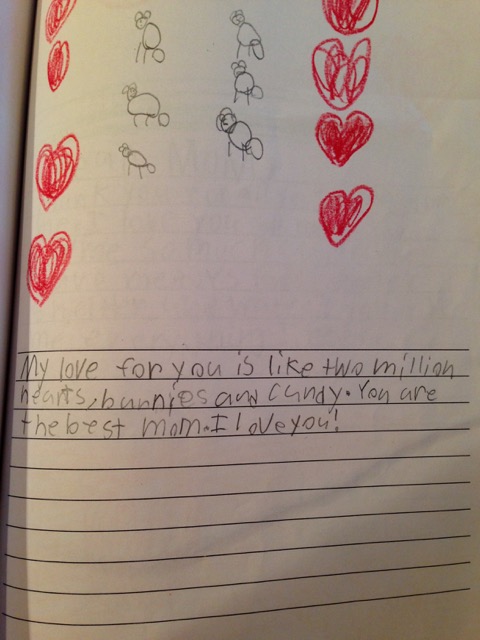 My love for you is like two million
hearts, bunnies and candy. You are
the best mom. I love you!